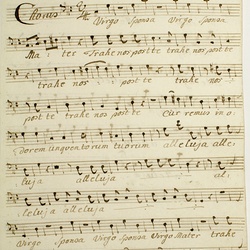 Chorus Virgo Sponsa Virgo Sponsa
Mater Trahe nos post te trahe nos post te
trahe nos post te trahe nos
post te trahe nos post te Curremus in o
dorem unguentorum tuorum alleluja alle
luja alleluja al
leluja alleluja
Virgo Sponsa Virgo Sponsa Virgo Mater trahe